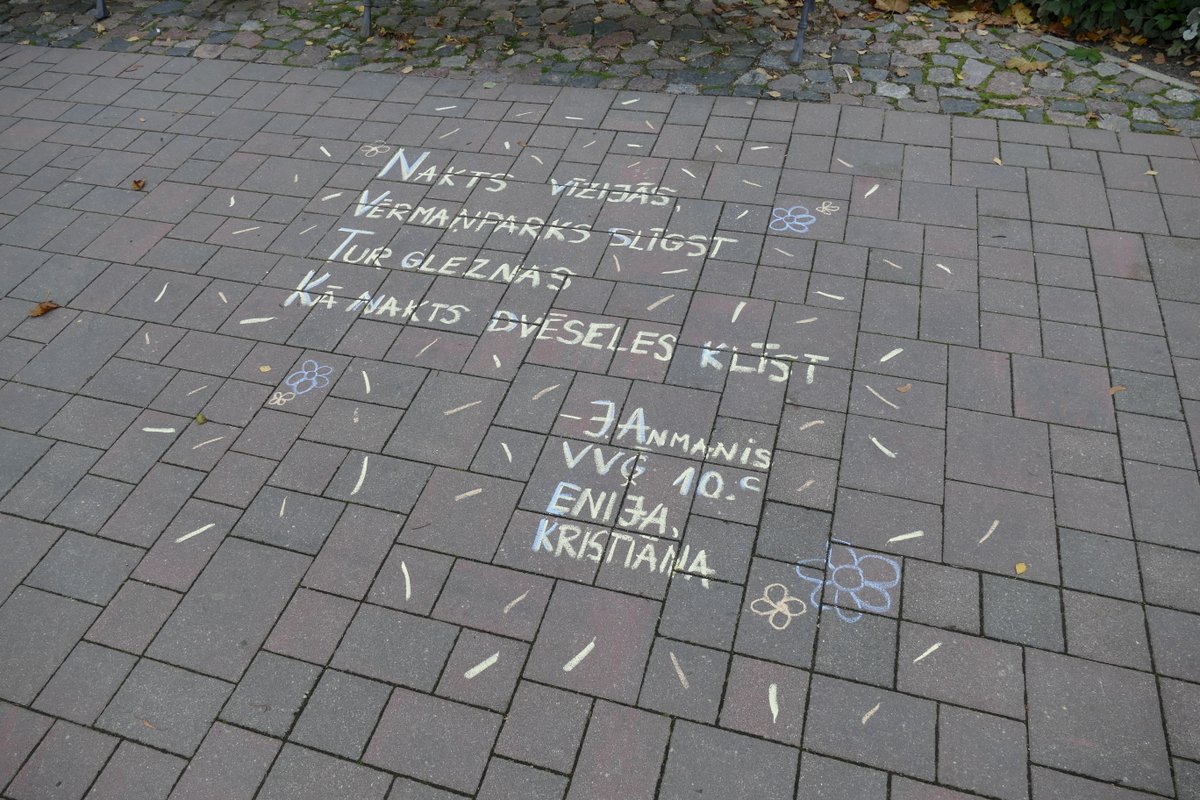 NAKTS VĪZIJĀS,
VĒRMAŅPARKS SLĪGST
TUR GLEZNAS
KĀ NAKTS DVĒSELES KLĪST
- J. ANMANIS
VVĢ 10.C
ENIJA,
KRISTIĀNA